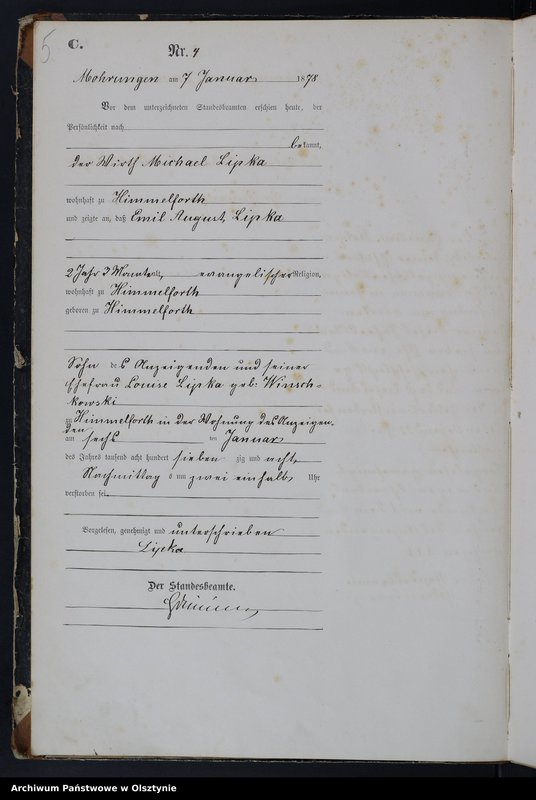 5
C.
Nr. 4
Mohrungen am 7 Januar 1878
Vor dem unterzeichneten Standesbeamten erschien heute, der
Persönlichkeit nach
bekannt,
der Wirth Michael Lipka
wohnhaft zu Himmelforth
und zeigte an, daß Emil August Lipka
2 Jahr 3 Monate alt, evangelischer Religion,
wohnhaft zu Himmelforth
geboren zu Himmelforth
Sohn des Anzeigenden und seiner
Ehefrau Louise Lipka geb: Winsch-
kowski
zu Himmelforth in der Wohnung des Anzeigen-
den
am sechs ten Januar
des Jahres tausend acht hundert sieben zig und acht
Nachmittag s um zwei einhalb Uhr
verstorben sei.
Vorgelesen, genehmigt und unterschrieben
Lipka
Der Standesbeamte.
Archiwum Państwowe w Olsztynie